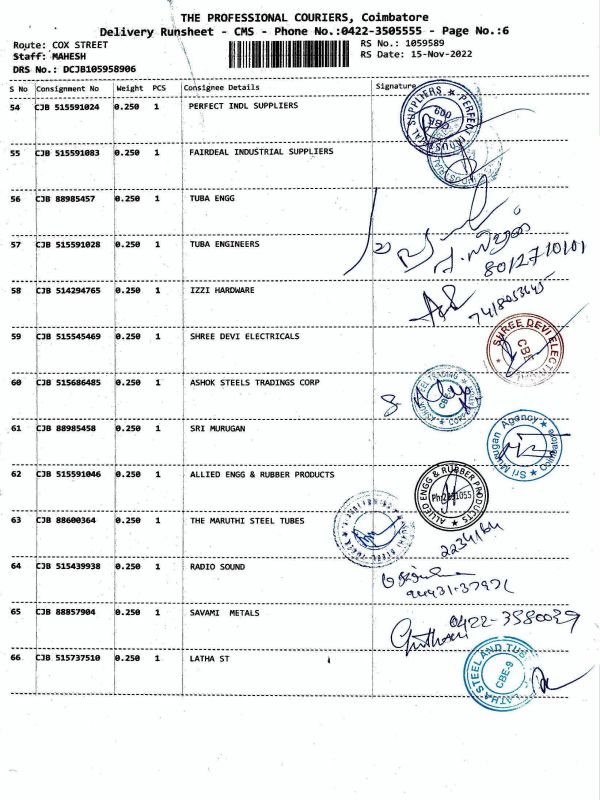 THE PROFESSIONAL COURIERS, Coimbatore
Delivery Runsheet - CMS - Phone No.:0422-3505555 - Page No.:6
Route: COX STREET
RS No.: 1059589
Staff: MAHESH
RS Date: 15-Nov-2022
DRS No.: DCJB105958906
S No Consignment No Weight PCS Consignee Details Signature
54 CJB 515591024 0.250 1 PERFECT INDL SUPPLIERS
55 CJB 515591083 0.250 1 FAIRDEAL INDUSTRIAL SUPPLIERS
56 CJB 88985457 0.250 1 TUBA ENGG
57 CJB 515591028 0.250 1 TUBA ENGINEERS
8012710101
58 CJB 514294765 0.250 1 IZZI HARDWARE
59 CJB 515545469 0.250 1 SHREE DEVI ELECTRICALS
SHREE DEVI ELECT
CBE
60 CJB 515686485 0.250 1 ASHOK STEELS TRADINGS CORP
61 CJB 88985458 0.250 1 SRI MURUGAN
Sri Murugan Agency
Coimbatore
62 CJB 515591046 0.250 1 ALLIED ENGG & RUBBER PRODUCTS
ALLIED ENGG & RUBBER PRODUCTS
63 CJB 88600364 0.250 1 THE MARUTHI STEEL TUBES
64 CJB 515439938 0.250 1 RADIO SOUND
65 CJB 88857904 0.250 1 SAVAMI METALS
0422-3580039
66 CJB 515737510 0.250 1 LATHA ST
LATHA STEEL AND TUB
CBE-9